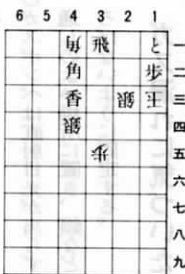 6 5 4 3 2 1
角 飛 と 一
角 歩 二
香 銀 玉 三
銀 四
歩 五
六
七
八
九